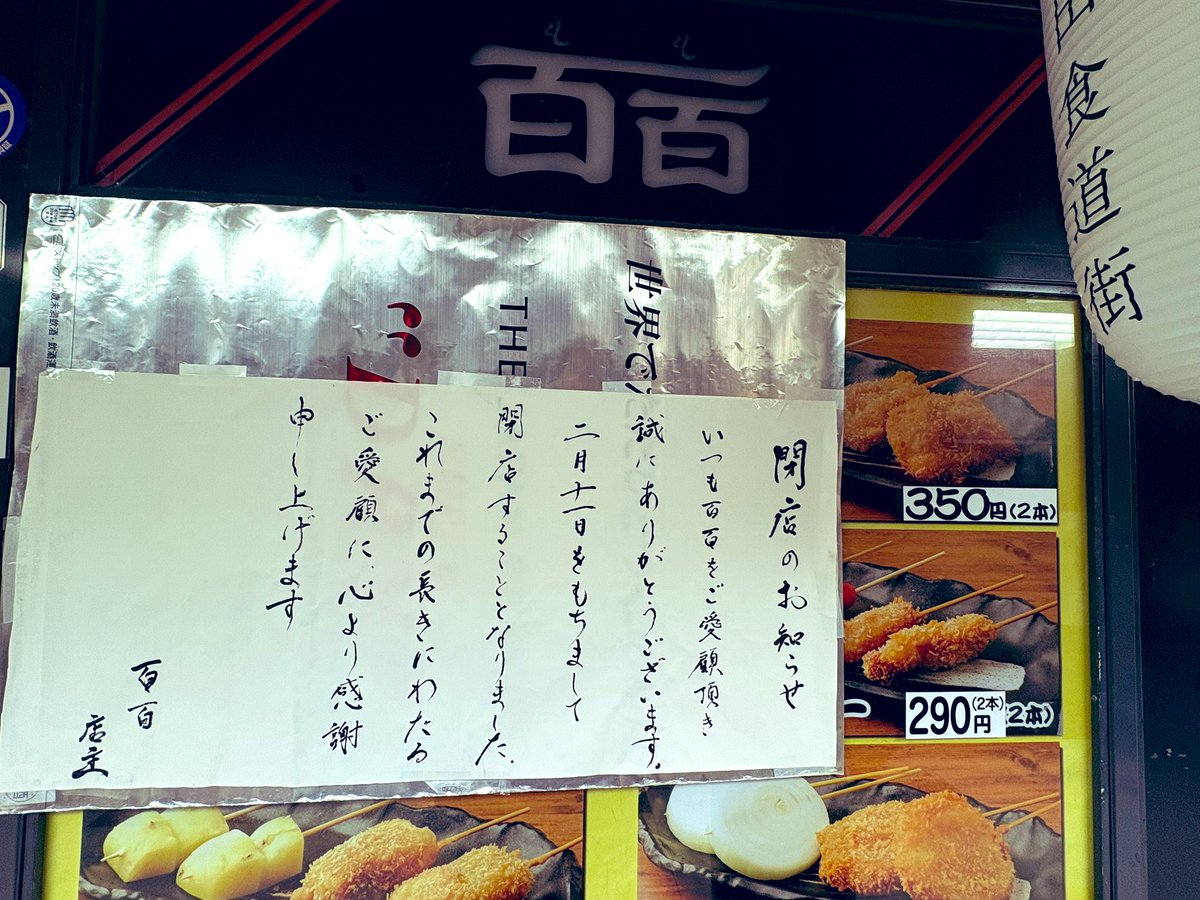 もも
百百
食道街
世界で
THE
閉店のお知らせ
いつも百百をご愛顧頂き
誠にありがとうございます。
二月十一日をもちまして
閉店することとなりました。
これまでの長きにわたる
ご愛顧に、心より感謝
申し上げます
百百
店主
350円(2本)
290円(2本)
2本)